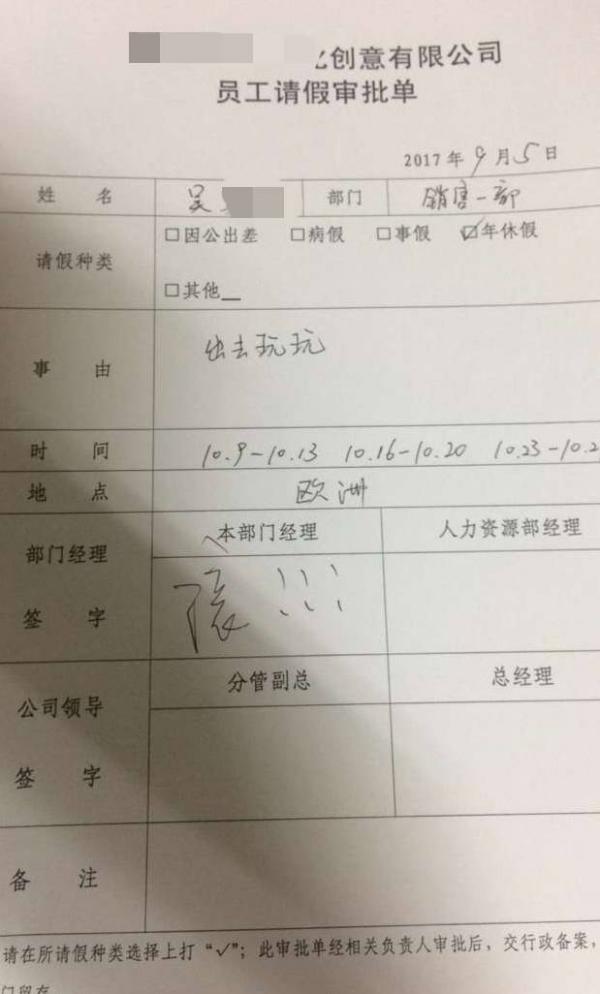 创意有限公司
员工请假审批单
2017年9月5日
姓 名 吴 部门 销售一部
请假种类 □因公出差 □病假 □事假 ☑年休假
□其他__
事 由 出去玩玩
时 间 10.9-10.13 10.16-10.20 10.23-10.2
地 点 欧洲
部门经理 签字 本部门经理 人力资源部经理
!!!
公司领导 签字 分管副总 总经理
备 注
请在所请假种类选择上打“✓”；此审批单经相关负责人审批后，交行政备案，
门留存